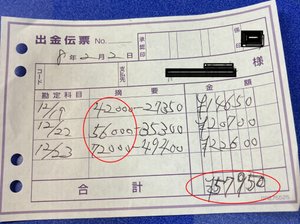 出金伝票 No.
承認印
係印
8年2月2日
コード
支払先
様
勘定科目 摘要 金額
12/19 42000-27350 ¥14650
12/22 56000-35300 ¥20700
12/23 72000-49400 ¥22600
合計 ¥57950